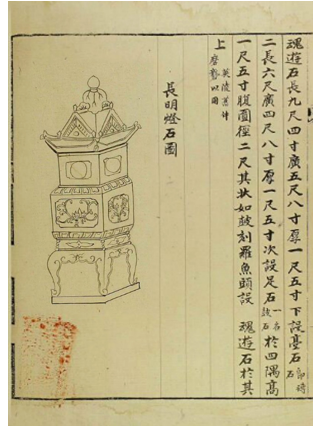 魂遊石長九尺四寸廣五尺八寸厚一尺五寸下設臺石即石
二長六尺廣四尺八寸厚一尺五寸次設足石一名鼓石於四隅高
一尺五寸腹圓徑二尺其狀如鼓刻羅魚頭設 魂遊石於其
上英陵舊件磨鑿以用
長明燈石圖